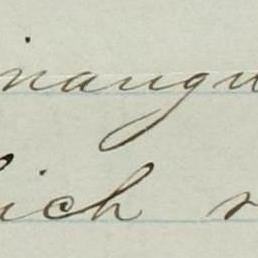 inaugu
hich